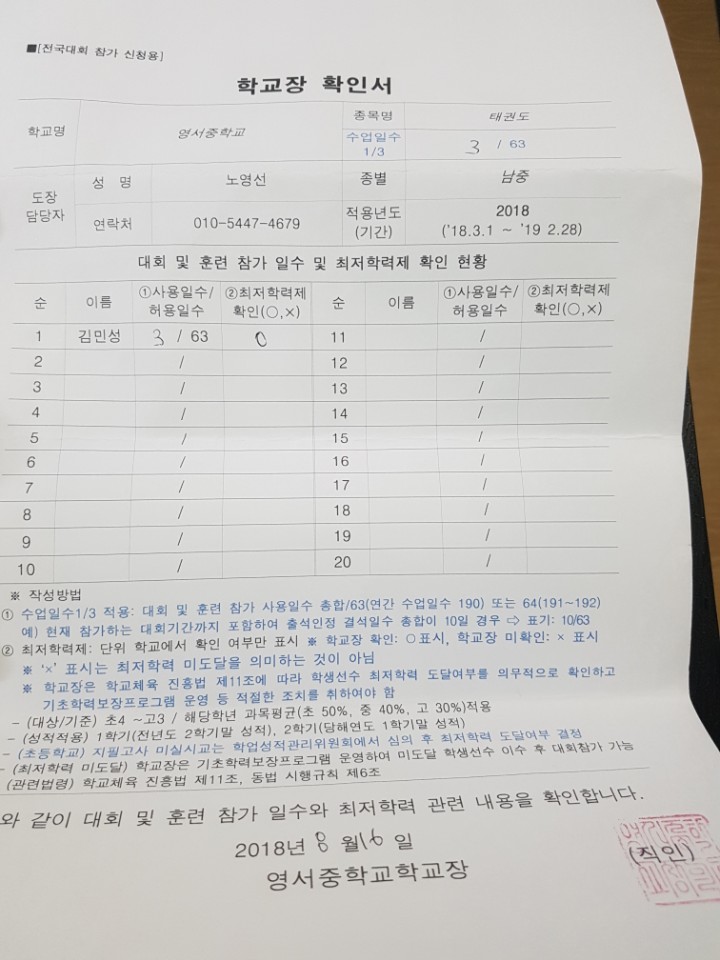 ■[전국대회 참가 신청용]
학교장 확인서
학교명 영서중학교 종목명 태권도
수업일수 1/3 3 / 63
도장 담당자 성 명 노영선 종별 남중
연락처 010-5447-4679 적용년도 (기간) 2018 ('18.3.1 ~ '19 2.28)
대회 및 훈련 참가 일수 및 최저학력제 확인 현황
순 이름 ①사용일수/허용일수 ②최저학력제 확인(○,×) 순 이름 ①사용일수/허용일수 ②최저학력제 확인(○,×)
1 김민성 3 / 63 O 11 /
2 / 12 /
3 / 13 /
4 / 14 /
5 / 15 /
6 / 16 /
7 / 17 /
8 / 18 /
9 / 19 /
10 / 20 /
※ 작성방법
① 수업일수1/3 적용: 대회 및 훈련 참가 사용일수 총합/63(연간 수업일수 190) 또는 64(191~192)
예) 현재 참가하는 대회기간까지 포함하여 출석인정 결석일수 총합이 10일 경우 ⇨ 표기: 10/63
② 최저학력제: 단위 학교에서 확인 여부만 표시 ※ 학교장 확인: ○표시, 학교장 미확인: × 표시
※ '×' 표시는 최저학력 미도달을 의미하는 것이 아님
※ 학교장은 학교체육 진흥법 제11조에 따라 학생선수 최저학력 도달여부를 의무적으로 확인하고
기초학력보장프로그램 운영 등 적절한 조치를 취하여야 함
- (대상/기준) 초4 ~고3 / 해당학년 과목평균(초 50%, 중 40%, 고 30%)적용
- (성적적용) 1학기(전년도 2학기말 성적), 2학기(당해연도 1학기말 성적)
- (초등학교) 지필고사 미실시교는 학업성적관리위원회에서 심의 후 최저학력 도달여부 결정
- (최저학력 미도달) 학교장은 기초학력보장프로그램 운영하여 미도달 학생선수 이수 후 대회참가 가능
(관련법령) 학교체육 진흥법 제11조, 동법 시행규칙 제6조
와 같이 대회 및 훈련 참가 일수와 최저학력 관련 내용을 확인합니다.
2018년 8 월 16 일
영서중학교학교장 (직인)